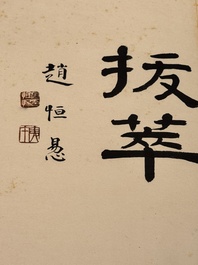 拔萃
趙恒惖